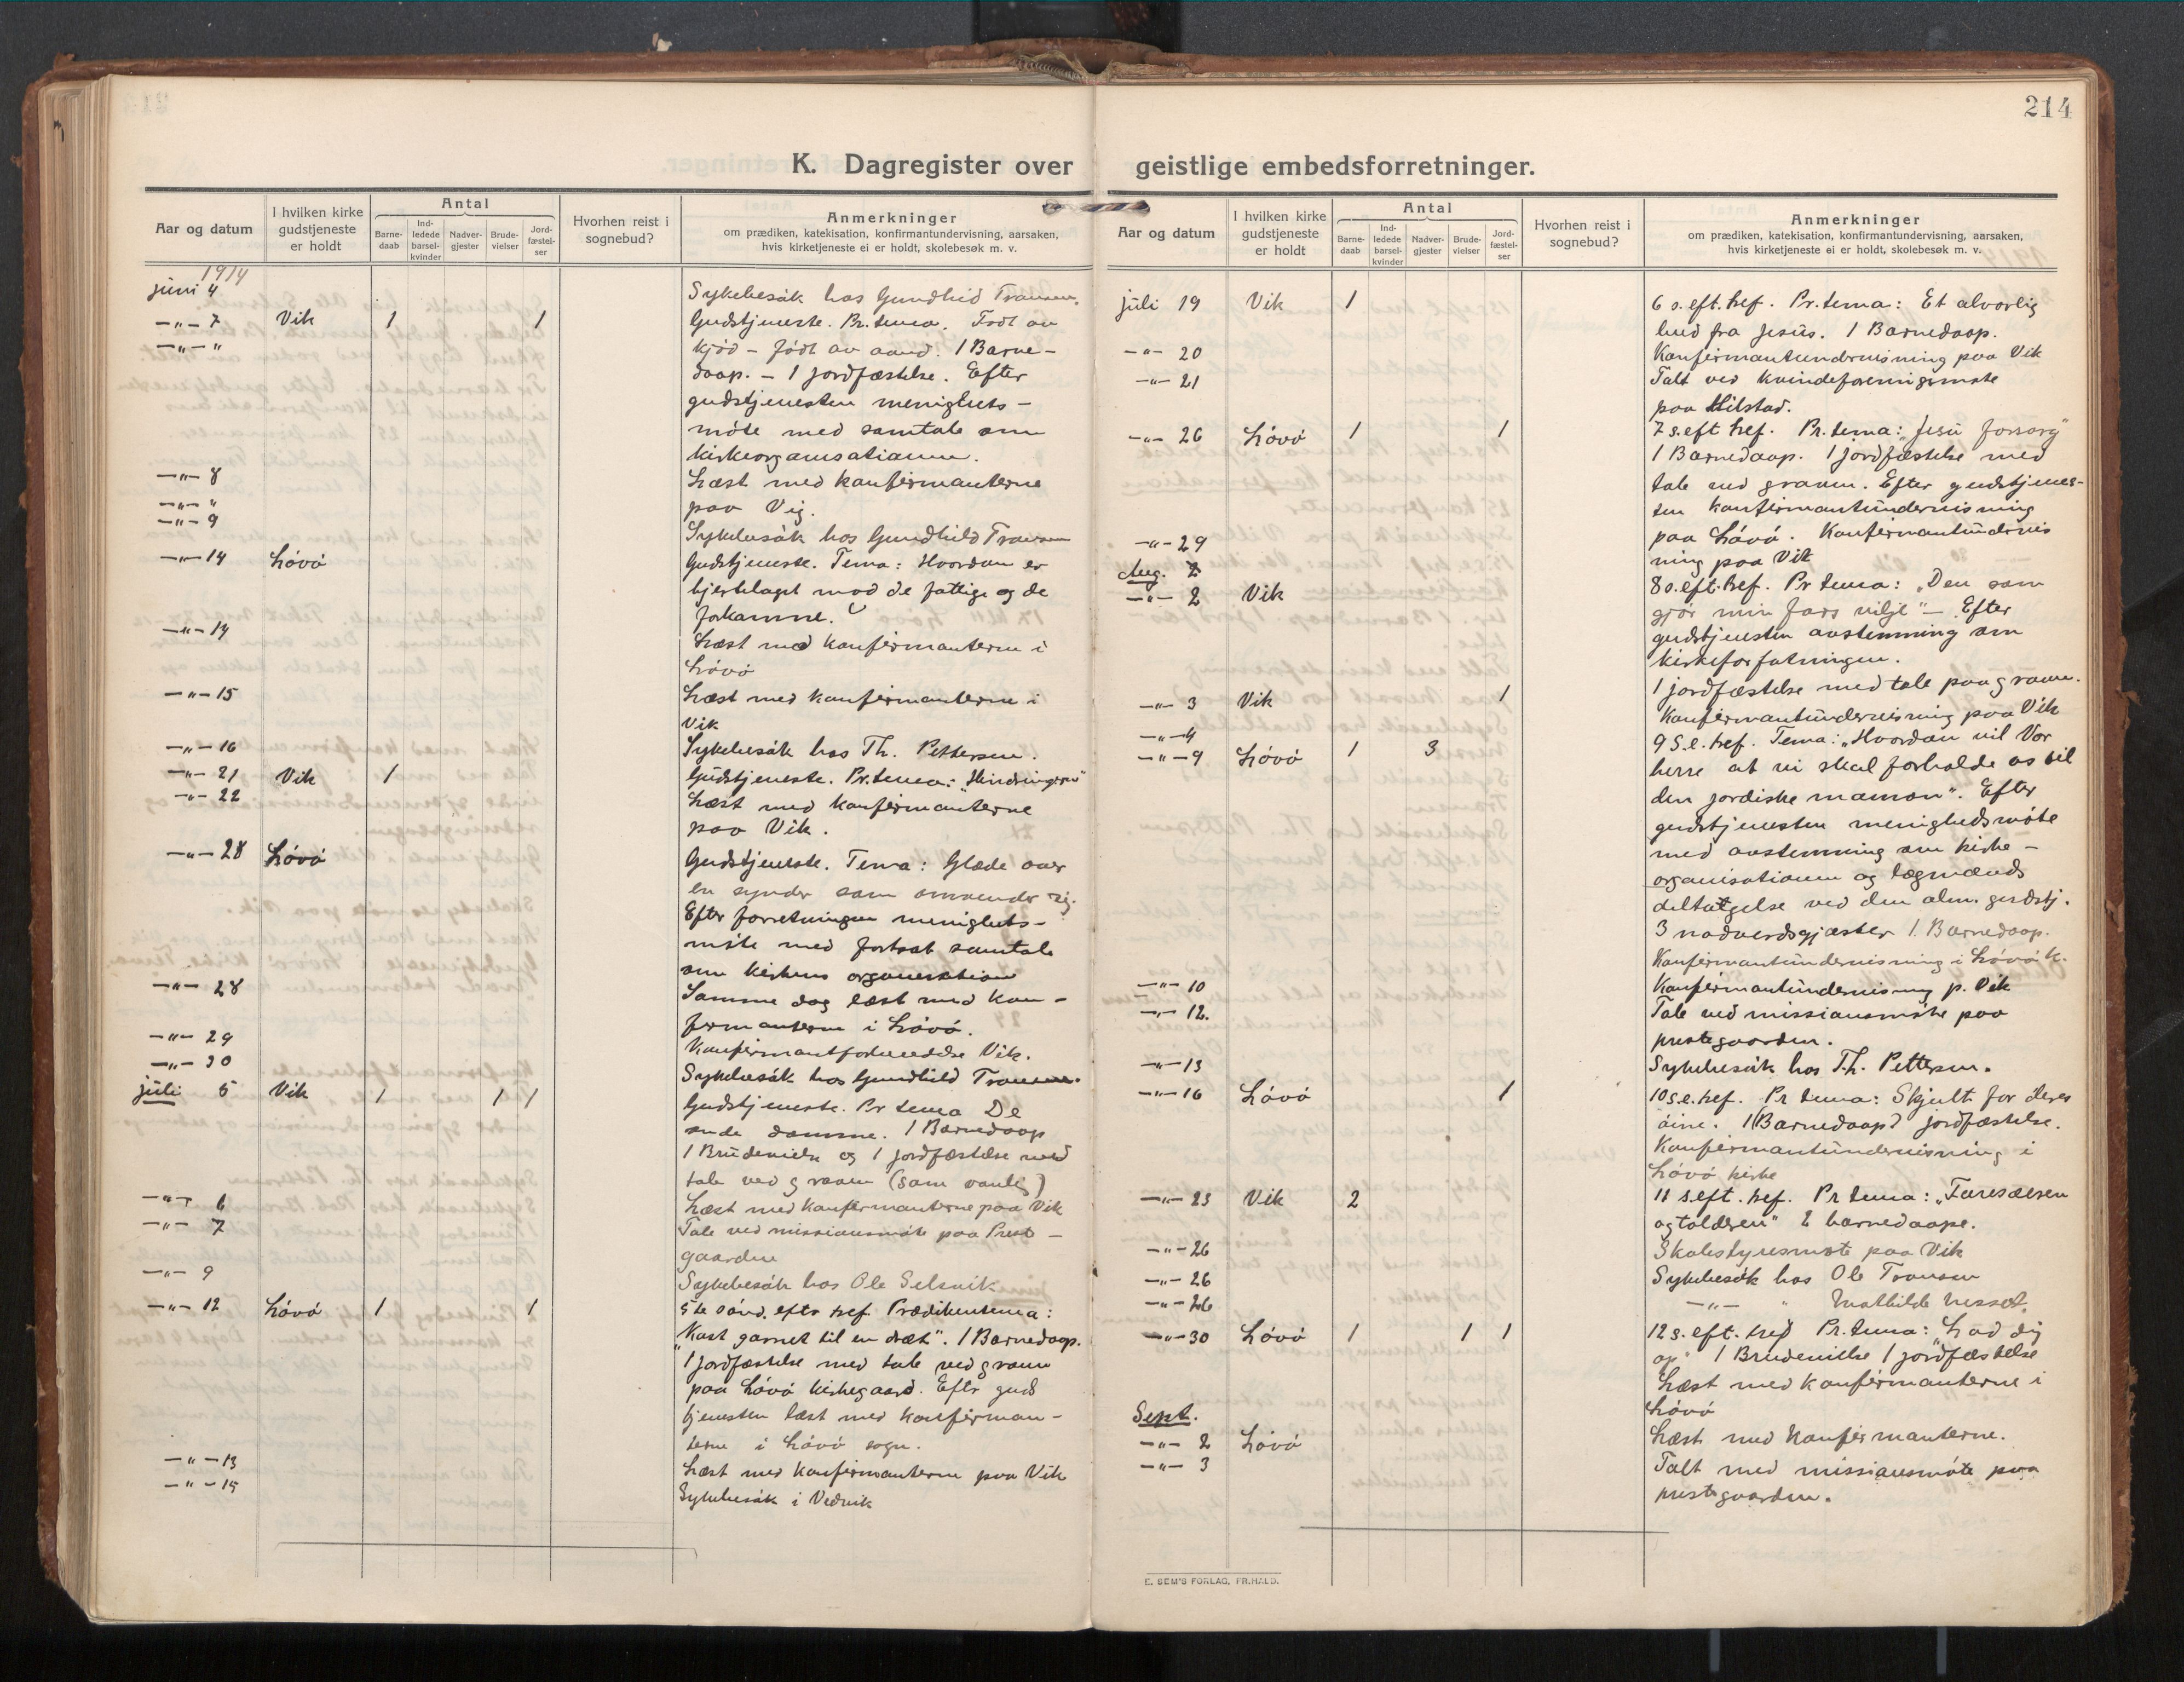 214
K. Dagregister over geistlige embedsforretninger.
Aar og datum
I hvilken kirke gudstjeneste er holdt
Antal
Barne-daab
Ind-ledede barsel-kvinder
Nadver-gjester
Brude-vielser
Jord-fæstel-ser
Hvorhen reist i sognebud?
Anmerkninger
om prædiken, katekisation, konfirmantundervisning, aarsaken,
hvis kirketjeneste ei er holdt, skolebesøk m. v.
1914
juni 4 Sykebesök hos Gundhild Transen.
—"— 7 Vik 1 1 Gudstjeneste. Pr. tema. Født av
—"— " kjød – født av aand. 1 Barne-
daap. – 1 jordfæstelse. Efter
gudstjenesten menighets-
møte med samtale om
kirkeorganisationen.
—"— 8 Læst med konfirmanterne
—"— " paa Vig.
—"— 9 Sykebesök hos Gundhild Transen
—"— 14 Lövö Gudstjeneste. Tema: Hvordan er
hjertelaget mod de fattige og de
forkomne.
—"— 14 Læst med konfirmanterne i
Lövö
—"— 15 Læst med konfirmanterne i
Vik
—"— 16 Sykebesök hos Th. Pettersen.
—"— 21 Vik 1 Gudstjeneste. Pr. tema: "Hindringer"
—"— 22 Læst med konfirmanterne
paa Vik.
—"— 28 Lövö Gudstjeneste. Tema: Glæde over
en synder som omvender sig.
Efter forretningen menighets-
möte med fortsat samtale
om kirkens organisation
—"— 28 Samme dag læst med kon-
firmanterne i Lövö.
—"— 29 Konfirmantforberedelse Vik.
—"— 30 Sykebesök hos Gundhild Transen.
juli 5 Vik 1 1 1 Gudstjeneste. Pr tema De
onde domme. 1 Barnedaap
1 Brudevielse og 1 jordfæstelse med
tale ved graven (som vanlig)
—"— 6 Læst med konfirmanterne paa Vik
—"— 7 Tale ved missionsmöte paa Prest-
gaarden
—"— 9 Sykebesök hos Ole Selsvik
—"— 12 Lövö 1 1 5te sönd. efter tref. Prædikentema:
"Kast garnet til en dræt". 1 Barnedaap.
1 jordfæstelse med tale ved graven
paa Lövö kirkegaard. Efter guds
tjenesten læst med konfirman-
terne i Lövö sogn.
—"— 13 Læst med konfirmanterne paa Vik
—"— 15 Sykebesök i Vedvik
Aar og datum
I hvilken kirke gudstjeneste er holdt
Antal
Barne-daab
Ind-ledede barsel-kvinder
Nadver-gjester
Brude-vielser
Jord-fæstel-ser
Hvorhen reist i sognebud?
Anmerkninger
om prædiken, katekisation, konfirmantundervisning, aarsaken,
hvis kirketjeneste ei er holdt, skolebesøk m. v.
juli 19 Vik 1 6 s. eft. tref. Pr. tema: Et alvorlig
bud fra Jesus. 1 Barnedaap.
—"— 20 Konfirmantundervisning paa Vik
—"— 21 Talt ved kvindeforeningsmøte
paa Hilstad.
—"— 26 Lövö 1 1 7 s. eft tref. Pr. tema: "Jesu forsorg"
1 Barnedaap. 1 jordfæstelse med
tale ved graven. Efter gudstjenes-
ten konfirmantundervisning
—"— 29 paa Lövö. Konfirmantundervis
ning paa Vik
Aug. 2
—"— 2 Vik 8 s. eft. tref. Pr tema: "Den som
gjör min fars vilje" – Efter
gudstjenesten avstemning om
kirkeforfatningen.
—"— 3 Vik 1 1 jordfæstelse med tale paa graven.
—"— 4 Konfirmantundervisning paa Vik
—"— 9 Lövö 1 3 9 S. e. tref. Tema: "Hvordan vil Vor
herre at vi skal forholde os til
den jordiske mamon". Efter
gudstjenesten menighedsmöte
med avstemning om kirke-
organisationen og lægmænds
deltagelse ved den alm. gudstj.
3 nadverdsgjæster 1 Barnedaap.
Konfirmantundervisning i Lövö k.
—"— 10 Konfirmantundervisning p. Vik
—"— 12. Tale ved missionsmöte paa
prestegaarden.
—"— 13 Sykebesök hos Th. Pettersen.
—"— 16 Lövö 1 10 s. e. tref. Pr tema: Skjult for deres
öine. 1 (Barnedaap) jordfæstelse.
Konfirmantundervisning i
Lövö kirke
—"— 23 Vik 2 11 s. eft. tref. Pr tema: "Farisæeren
og tolderen" 2 barnedaape.
—"— 26 Skolestyresmøte paa Vik
—"— 26 Sykebesök hos Ole Transen
—"— 26 —"— " Mathilde Nesset.
—"— 30 Lövö 1 1 1 12 s. eft. tref Pr. tema: "Lad dig
op" 1 Brudevielse 1 jordfæstelse
Læst med konfirmanterne i
Lövö
Sept.
—"— 2 Lövö Læst med konfirmanterne.
—"— 3 Talt med missionsmöte paa
prestegaarden.
E. SEM'S FORLAG, FR.HALD.